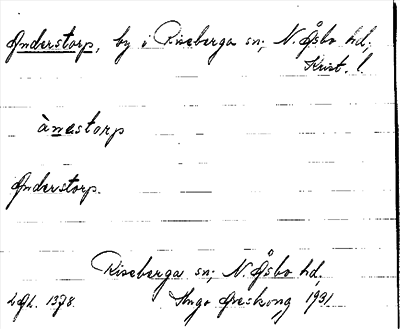 Anderstorp, by i Riseberga sn; N. Åsbo hd,
Krist. l.
ànestorp
Anderstorp.
Riseberga sn; N. Åsbo hd,
Lfl. 1378. Hugo Areskoug 1931